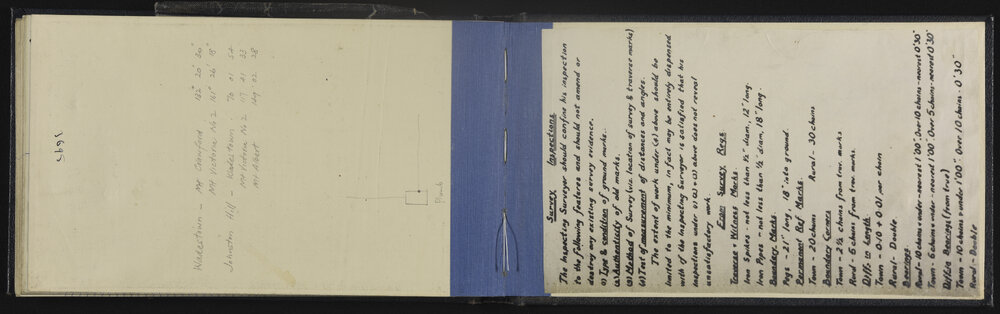 3693
Wakestown - Mt Crawford 182° 20' 50"
Mt Victoria No 2 141° 26' 18"
Johnston Hill - Wakestown 76 01 54
Mt Victoria No 2 117 01 33
Mt Albert 129 02 28
Plumb
Survey Inspections
The Inspecting Surveyor should confine his inspection
to the following features and should not amend or
destroy any existing survey evidence.
1) Type & condition of ground marks.
(2) Authenticity of old marks.
(3) Method of Survey (viz. location of survey & traverse marks)
(4) Test of measurement of distances and angles.
The extent of work under (4) above should be
limited to the minimum, in fact may be entirely dispensed
with if the Inspecting Surveyor is satisfied that his
inspections under 1) (2) & (3) above does not reveal
unsatisfactory work
From Survey Regs
Traverse & Witness Marks
Iron Spikes - not less than ½" diam. 12" long
Iron Pipes - not less than ½" diam. 18" long.
Boundary Marks
Pegs - 21" long, 18" into ground.
Permanent Ref Marks.
Town - 20 chains Rural - 30 chains
Boundary Corners
Town - 2½ chains from trav. marks
Rural - 5 chains from trav. marks.
Diff. in Length
Town - 0·10 + 0·01 per chain
Rural - Double
Bearings.
Rural - 10 chains & under - nearest 1'00". Over 10 chains - nearest 0'30"
Town - 5 chains & under - nearest 1'00". Over 5 chains - nearest 0'30"
Diff. in Bearings (from true)
Town - 10 chains & under 1'00". Over 10 chains - 0'30"
Rural - Double